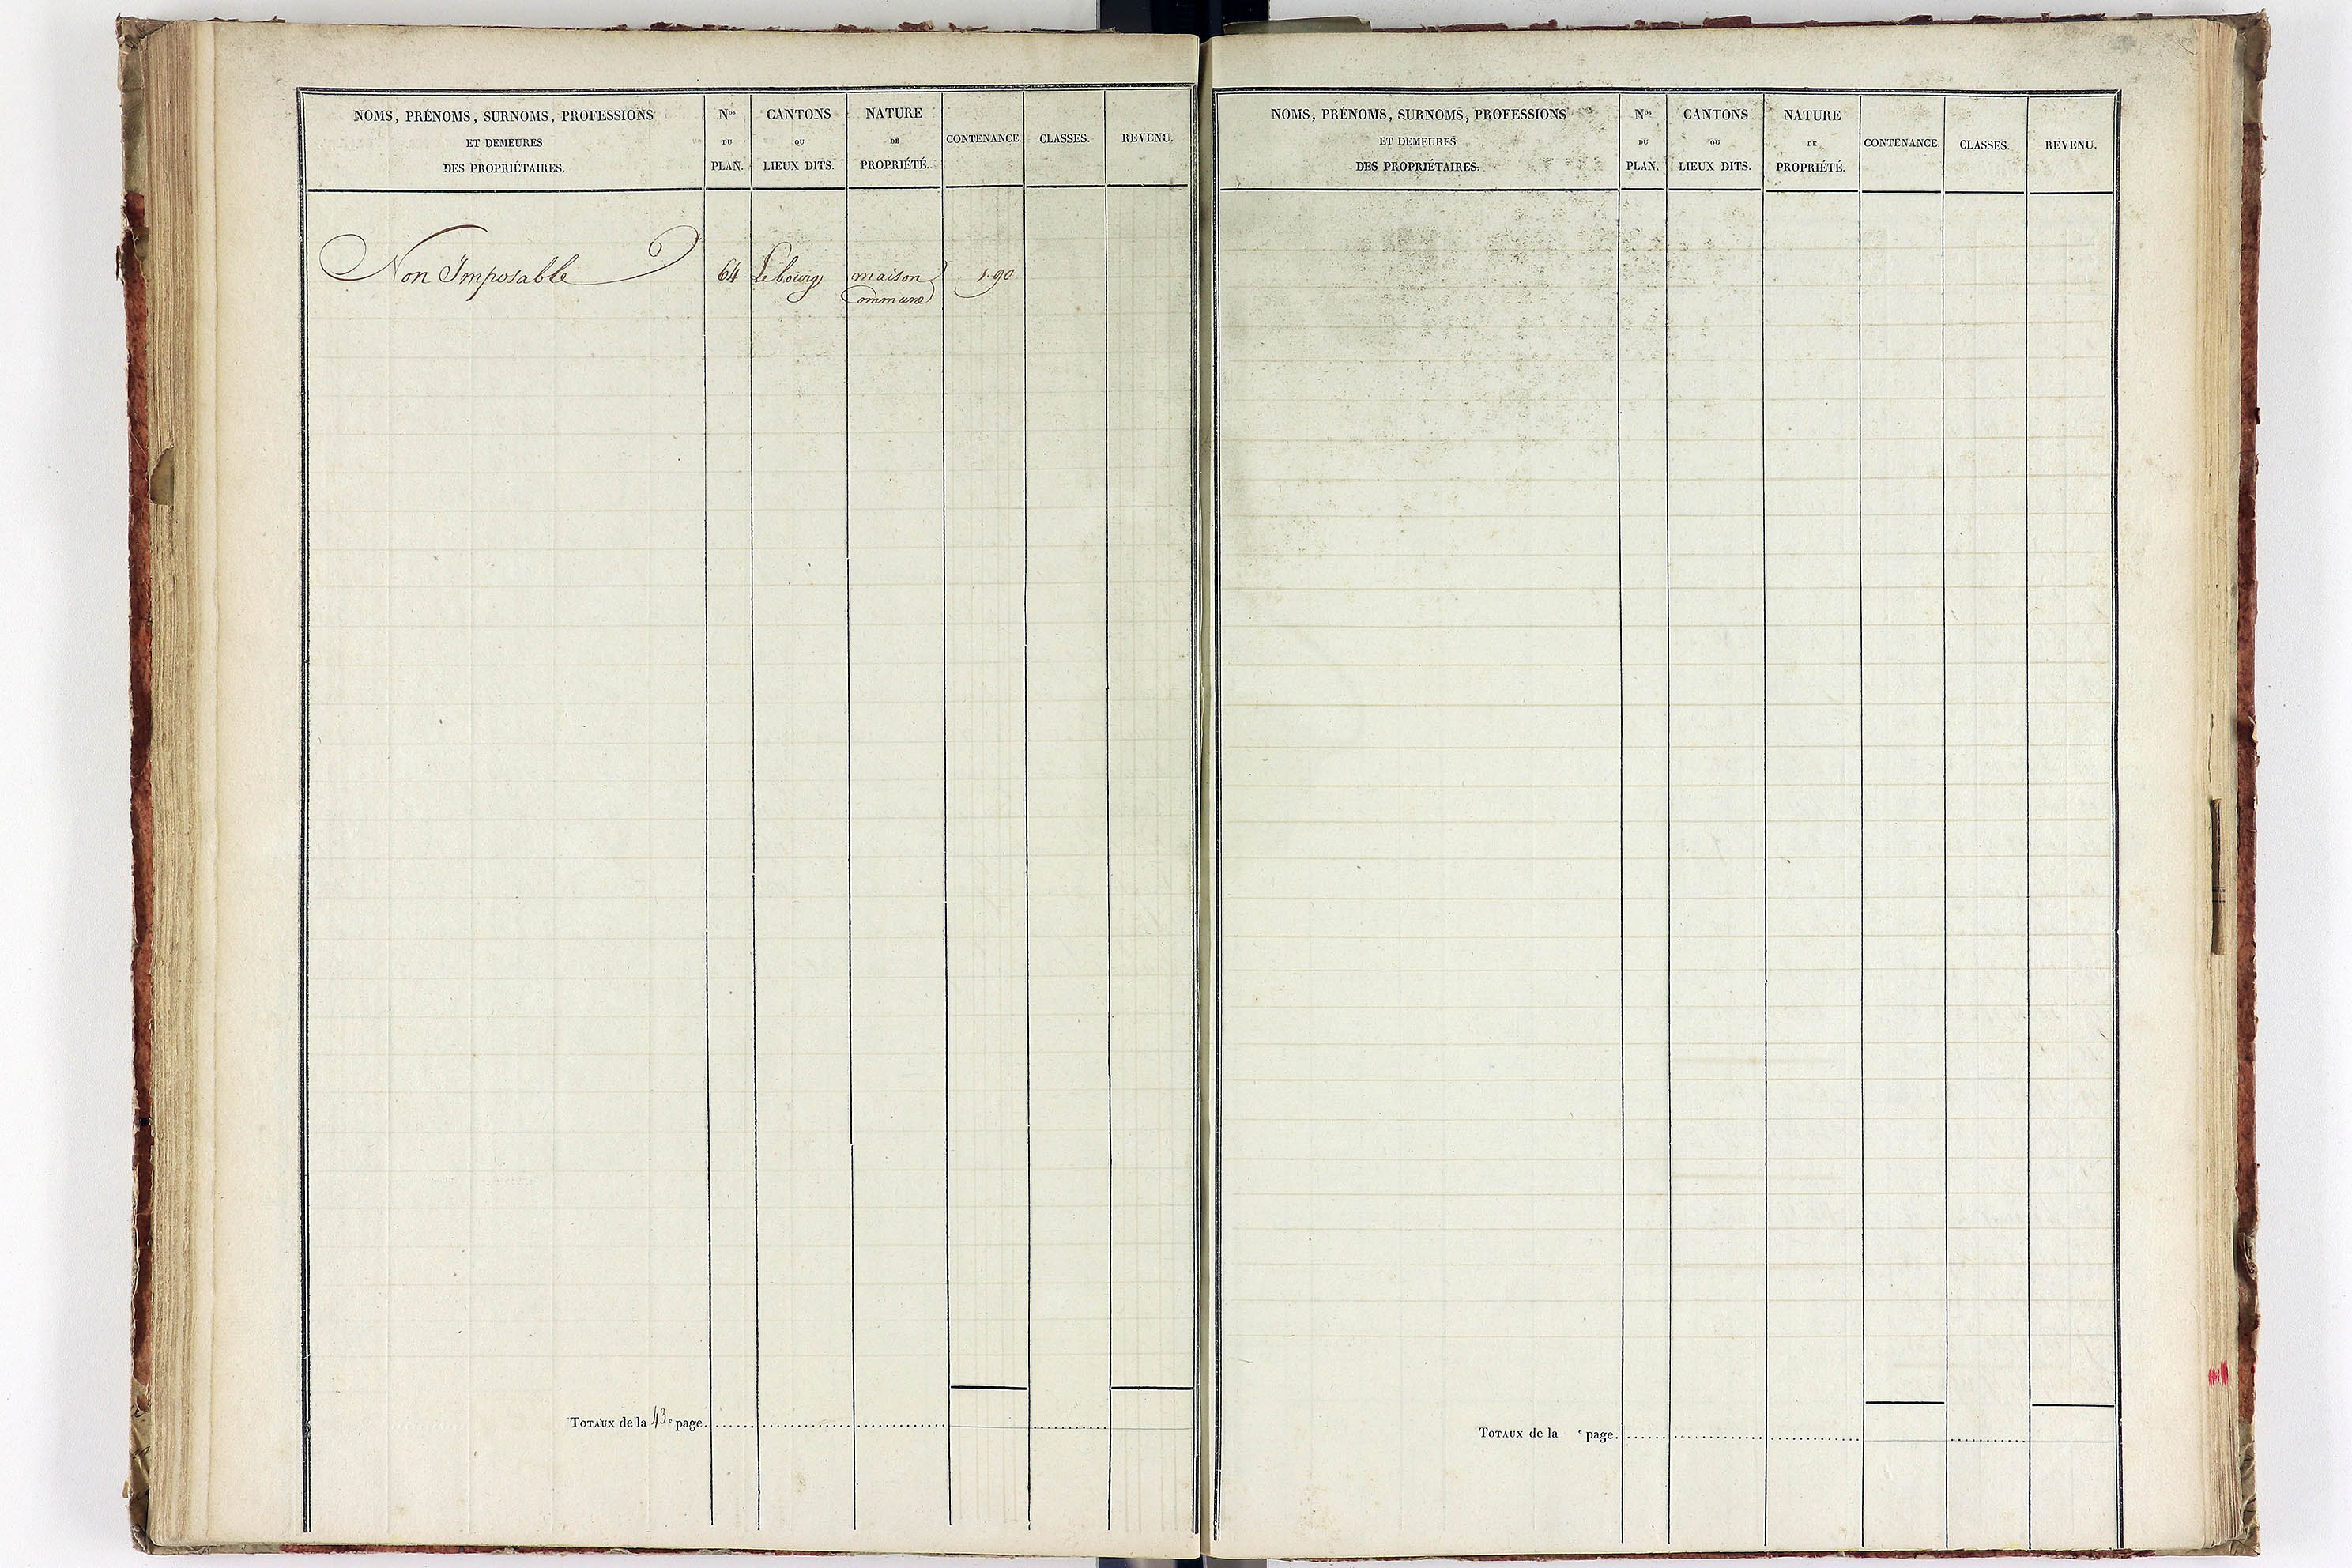 NOMS, PRÉNOMS, SURNOMS, PROFESSIONS
ET DEMEURES
DES PROPRIÉTAIRES.
Nos
DU
PLAN.
CANTONS
OU
LIEUX DITS.
NATURE
DE
PROPRIÉTÉ.
CONTENANCE.
CLASSES.
REVENU.
Non Imposable
64
Le bourg
maison
Commune
1 90
TOTAUX de la 43e page
NOMS, PRÉNOMS, SURNOMS, PROFESSIONS
ET DEMEURES
DES PROPRIÉTAIRES.
Nos
DU
PLAN.
CANTONS
OU
LIEUX DITS.
NATURE
DE
PROPRIÉTÉ.
CONTENANCE.
CLASSES.
REVENU.
TOTAUX de la e page